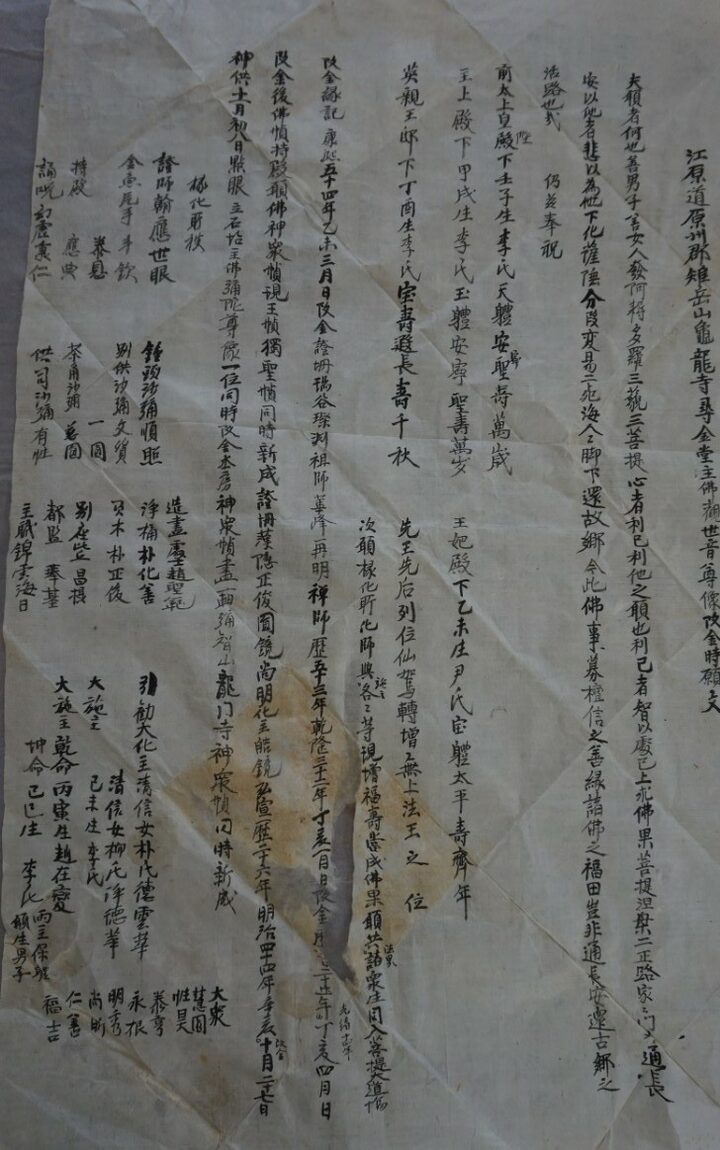 江原道原州郡雉岳山龜龍寺尋金堂主佛觀世音尊像改金時願文
夫願者何也善男子善女人發阿耨多羅三藐三菩提心者利己利他之願也利己者智以處己上求佛果菩提涅槃二正路家之通長
安以他者悲以爲他下化 分段變易二死海人之脚下還故鄕今此佛事募權信之善緣諸佛之福田豈非通長安還古鄕之
活路也哉 仍玆奉祝
前太上皇殿陛下壬子生李氏天體安寧聖壽萬歲
主上殿下甲戌生李氏玉體安寧聖壽萬歲 王妃殿下乙未生尹氏宝體太平壽齊年
英親王邸下丁酉生李氏宝壽遐長壽千秋 先王先后列位仙駕轉增無上法王之位
次願緣化所化師與各各等現增福壽當成佛果願共法界諸衆生同入菩提大道場
改金緣記 康熙五十四年乙未三月日改金證坍楊谷 祖師華峰再明禪師歷五十三年乾隆三十二年丁亥 月日改金 年丁亥四月日 光緖十三年
改金後佛幀持殿願佛神衆幀現王幀獨聖幀同時新成證坍華隱正俊圓鏡尙明化主皓鏡 歷二十六年明治四十四年辛亥改金十月二十七日
神供十一月初八日點眼 主佛彌陀尊像一位同時改金 神衆幀畫一面彌智山龍门寺神衆幀同時新成
緣化所秩
證師翰應世眼 鍾頭沙彌順照 造畫 趙聖範 引勸大化主淸信女朴氏德雲華 大衆
金魚 斗欽 別供沙彌文質 淨桶朴化善 淸信女柳氏淨德華 慧圓
泰恩 一圓 負木朴正俊 大施主 己未生李氏 性昊
持殿 應典 茶角沙彌 別座 昌攝 大施主乾命丙寅生趙在 兩主保體 泰亨
誦呪 仁 供司沙彌有性 都監 奉基 坤命己巳生 李氏 願生男子 永根
主職錦雲海日 明秀
尙昕
仁善
福吉